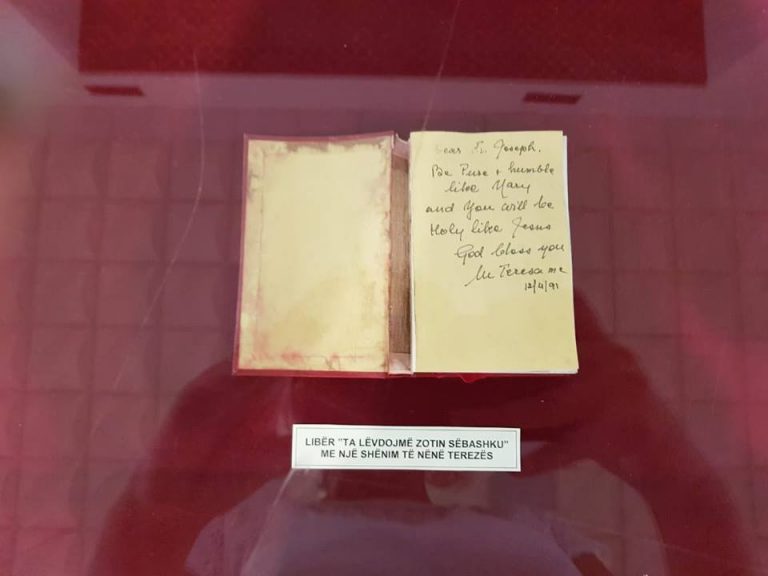 Dear Fr. Joseph.
Be Pure + humble
like Mary
and You will be
Holy like Jesus
God bless you
M Teresa mc
12/4/91
LIBËR "TA LËVDOJMË ZOTIN SËBASHKU"
ME NJË SHËNIM TË NËNË TEREZËS